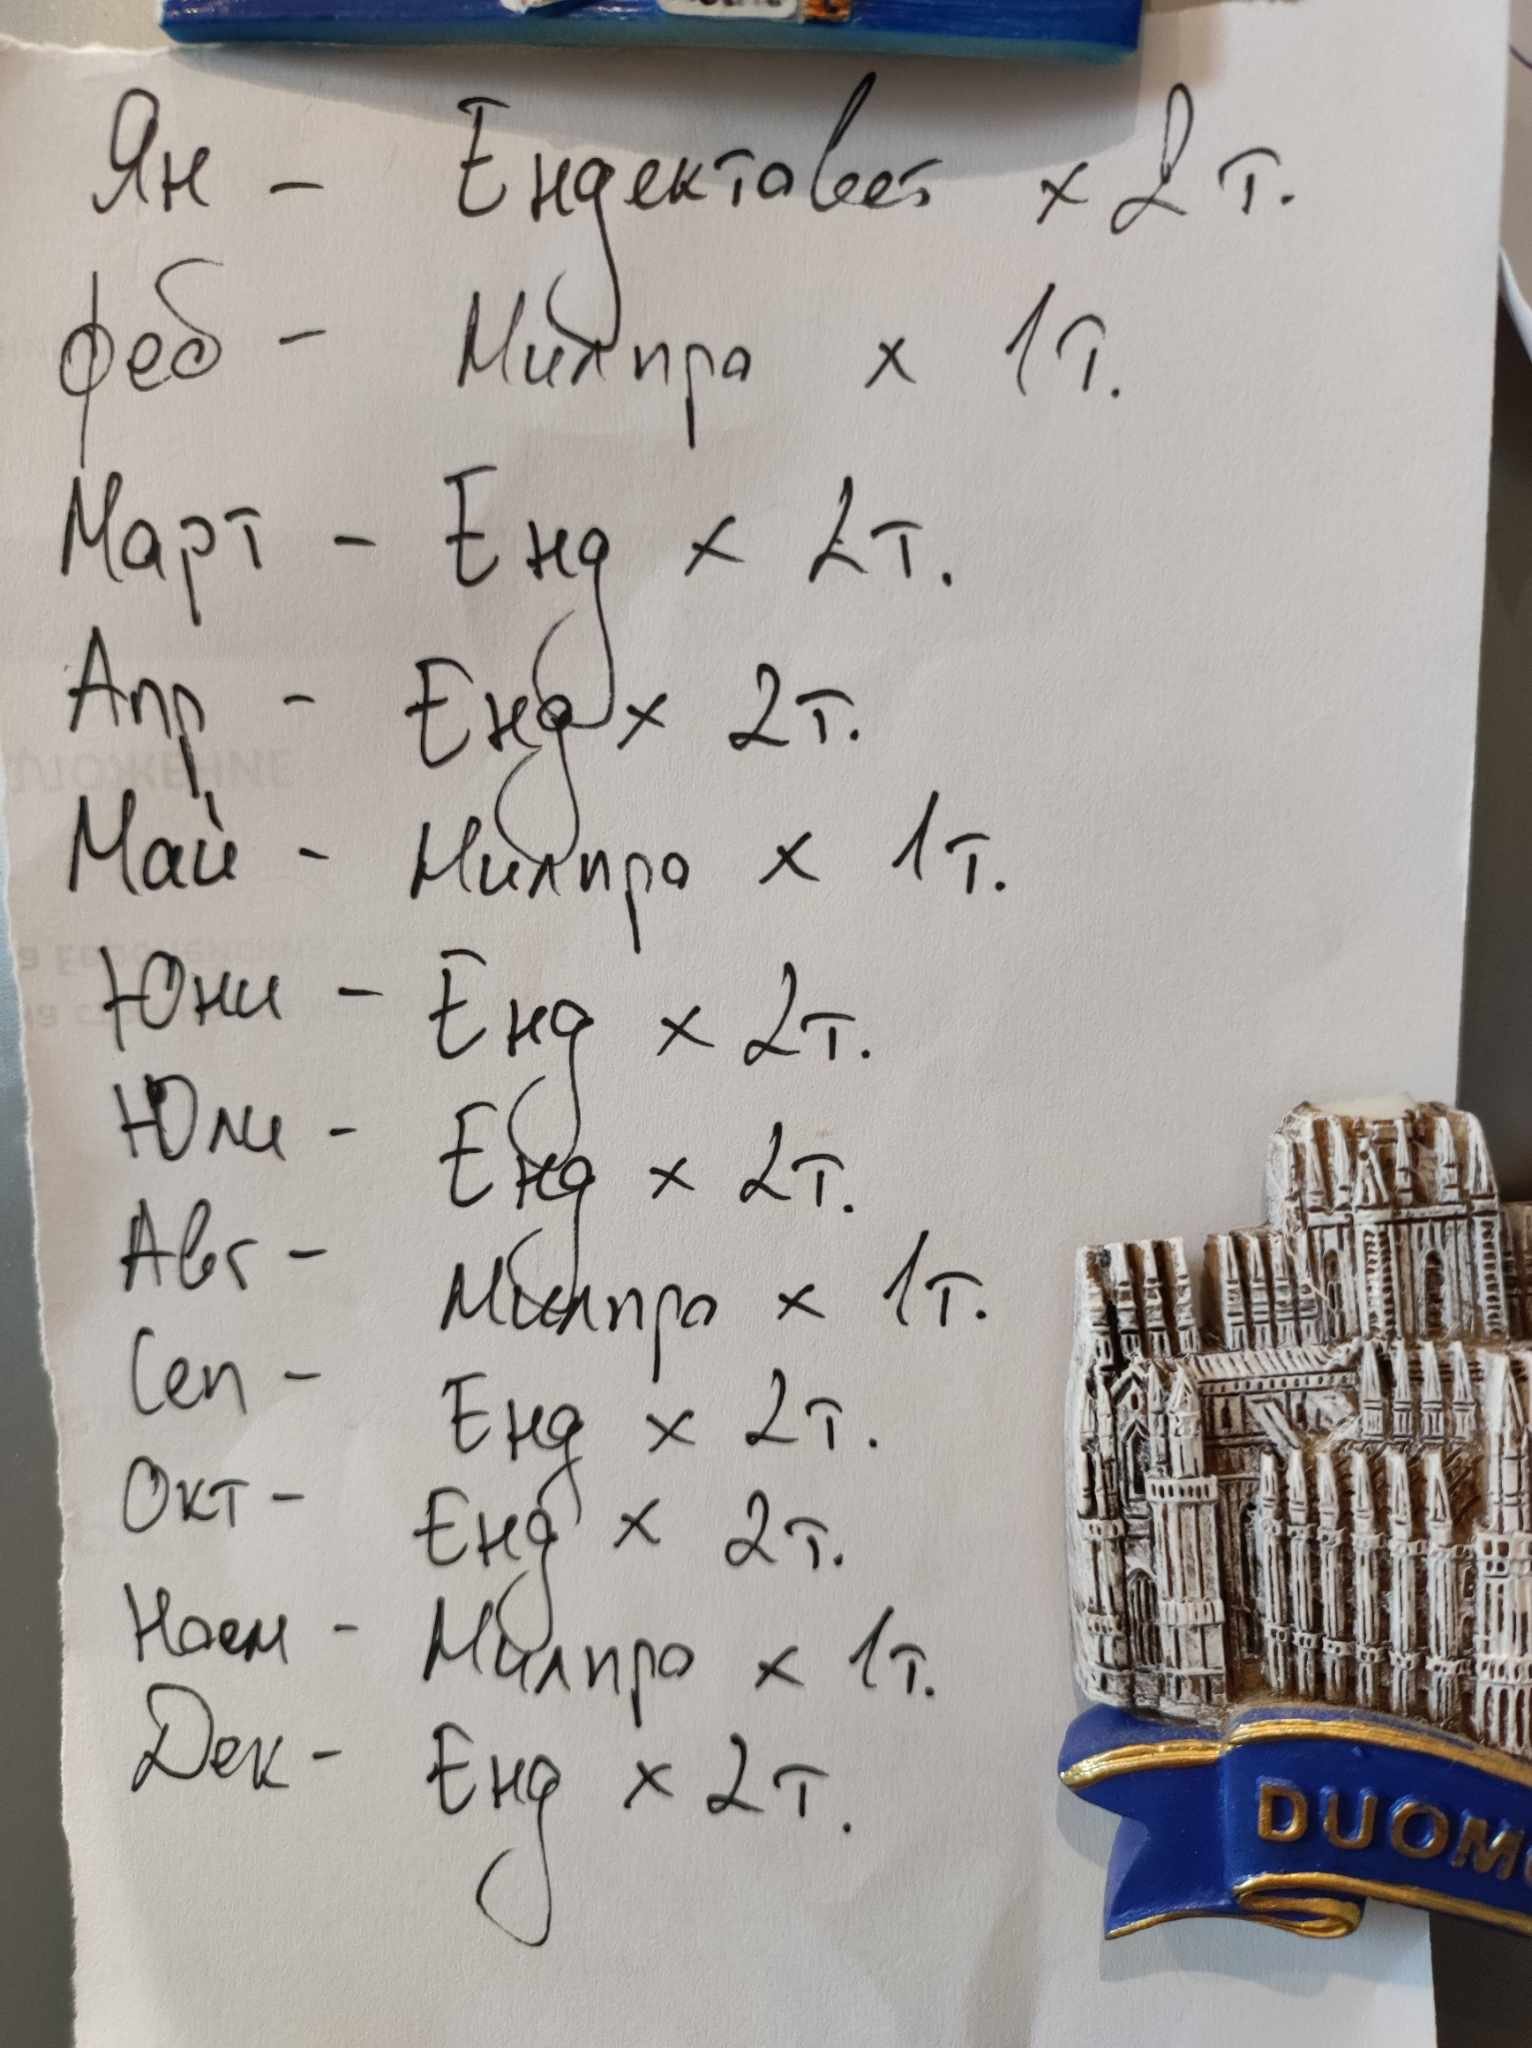 Ян - Ендектовет x 2 т.
Феб - Милпро x 1 т.
Март - Енд x 2 т.
Апр - Енд x 2 т.
Май - Милпро x 1 т.
Юни - Енд x 2 т.
Юли - Енд x 2 т.
Авг - Милпро x 1 т.
Сеп - Енд x 2 т.
Окт - Енд x 2 т.
Ноем - Милпро x 1 т.
Дек - Енд x 2 т.